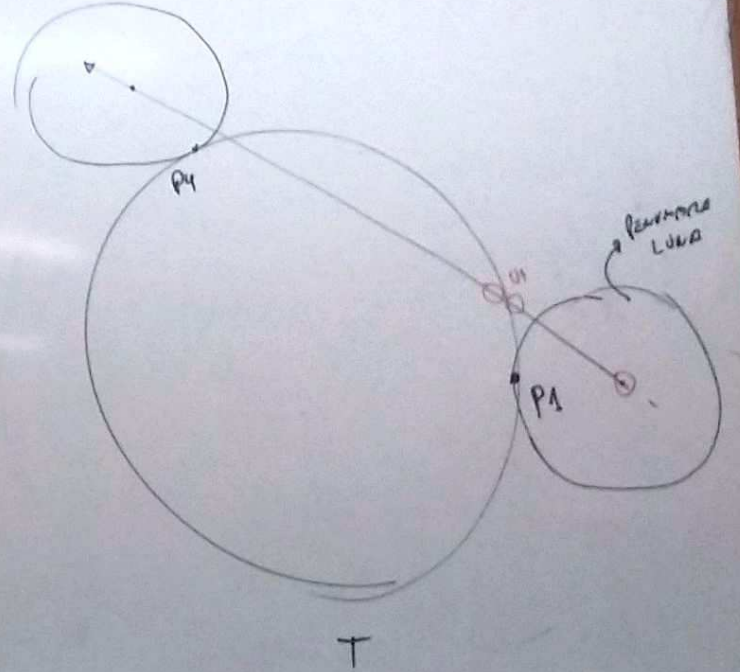 P4
U1
PENUMBRA
LUNA
P1
T